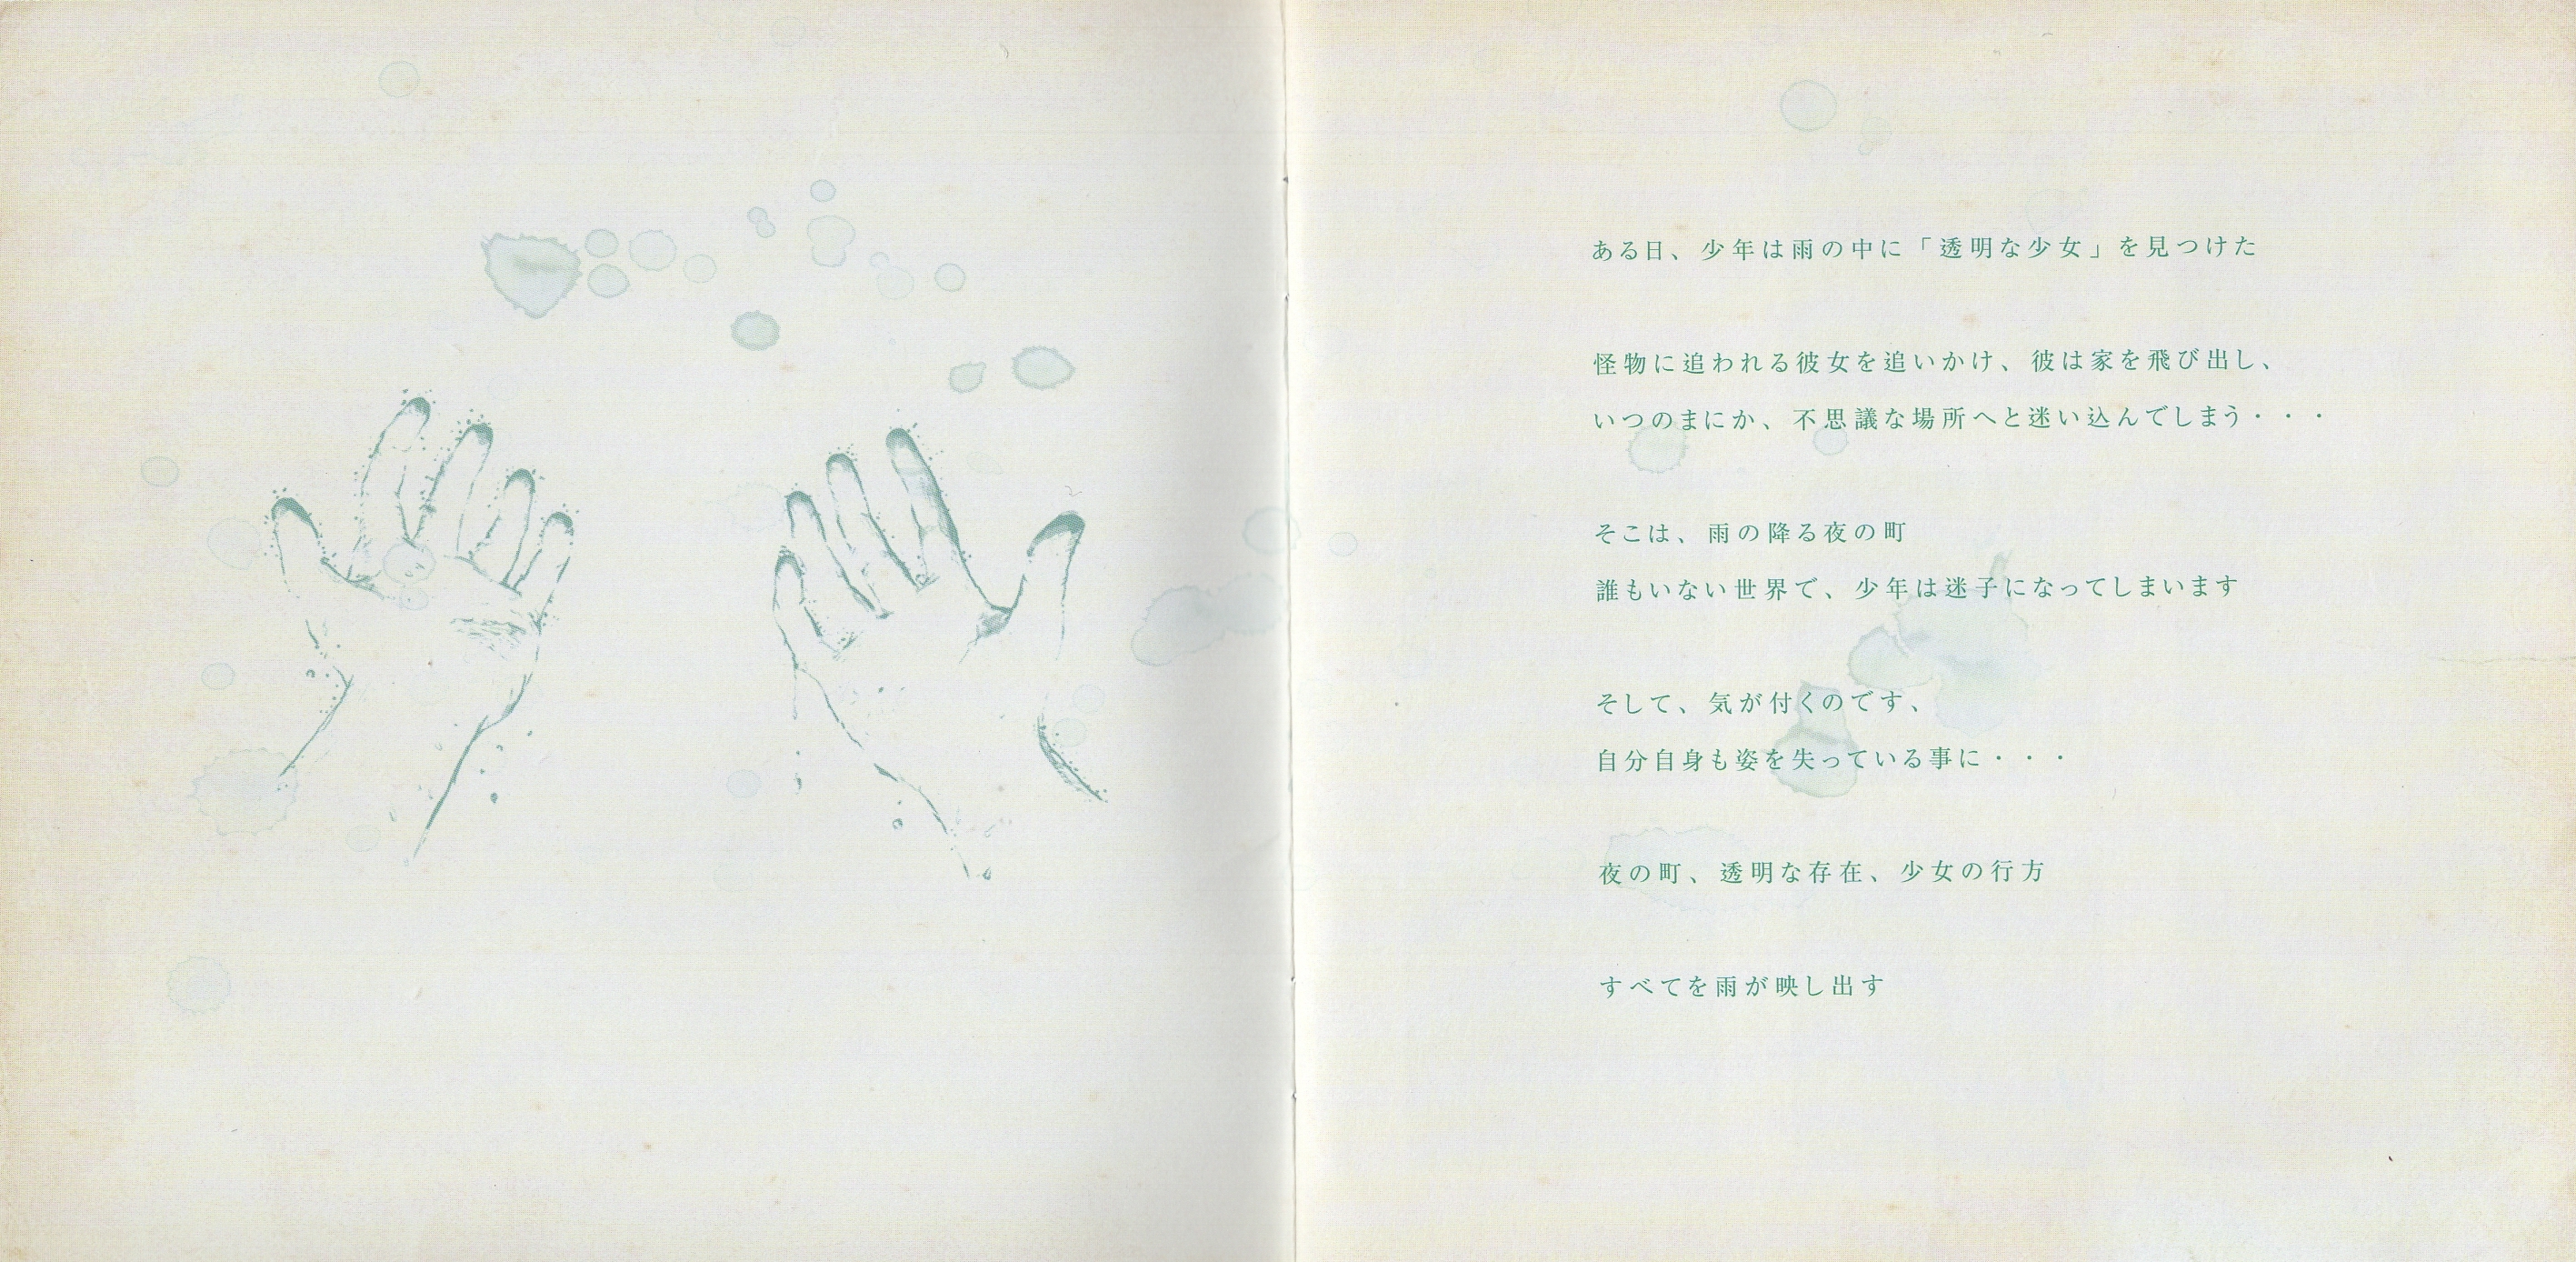 ある日、少年は雨の中に「透明な少女」を見つけた
怪物に追われる彼女を追いかけ、彼は家を飛び出し、
いつのまにか、不思議な場所へと迷い込んでしまう・・・
そこは、雨の降る夜の町
誰もいない世界で、少年は迷子になってしまいます
そして、気が付くのです、
自分自身も姿を失っている事に・・・
夜の町、透明な存在、少女の行方
すべてを雨が映し出す